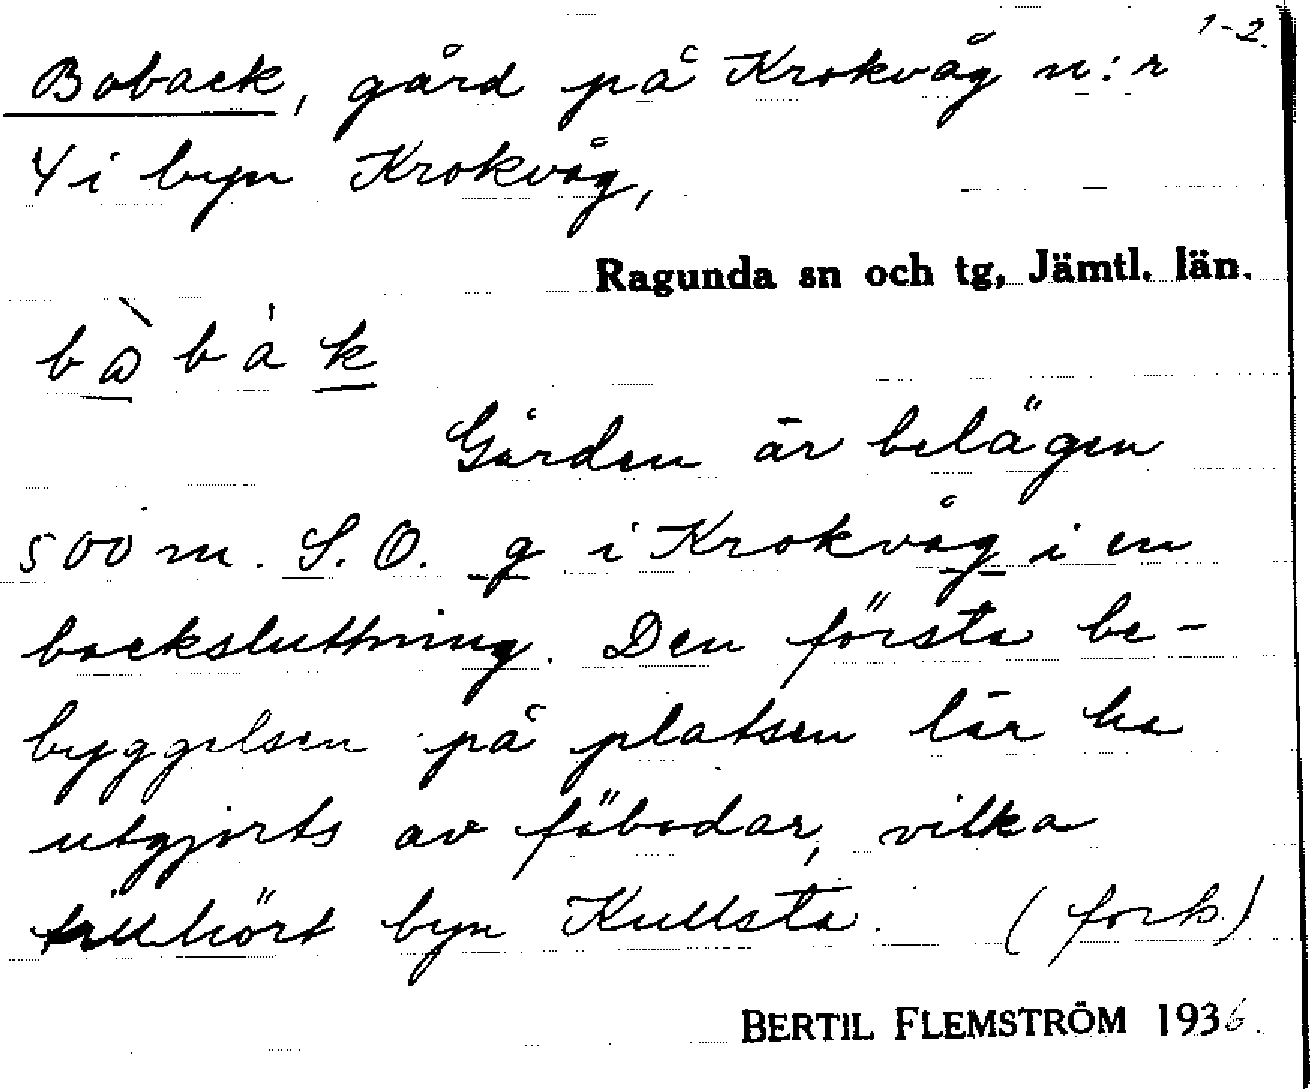 1-2.
Boback, gård på Krokvåg n:r
4 i byn Krokvåg,
Ragunda sn och tg, Jämtl. län.
Gården är belägen
500 m. S.O. g i Krokvåg i en
backsluttning. Den första be-
byggelsen på platsen lär ha
utgjorts av fäbodar, vilka
tillhört byn Kullsta. (forts.)
BERTIL FLEMSTRÖM 1936.